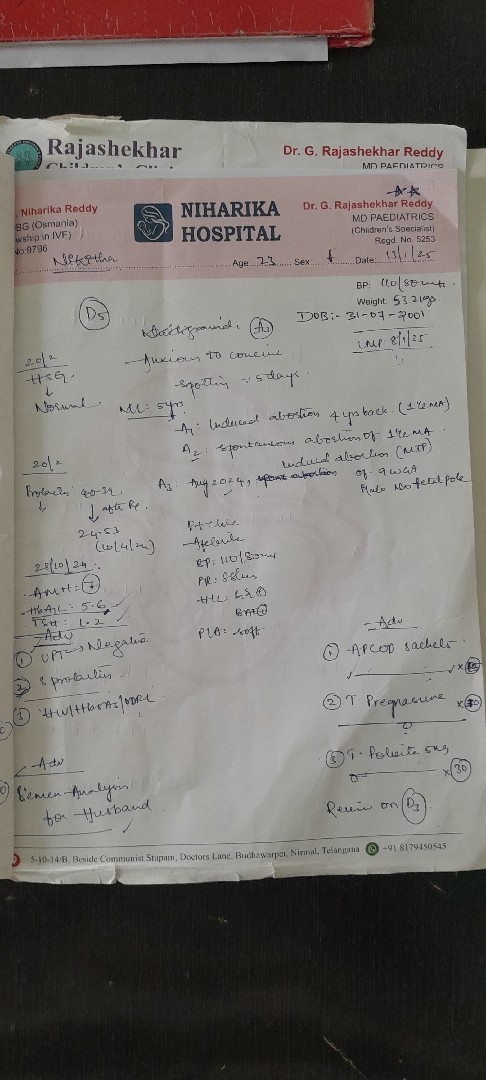 Rajashekhar
Dr. G. Rajashekhar Reddy
MD PAEDIATRICS
. Niharika Reddy
BG (Osmania)
wship in IVF)
No:9796
NIHARIKA
HOSPITAL
Dr. G. Rajashekhar Reddy
MD PAEDIATRICS
(Children's Specialist)
Regd. No. 5253
Age 23 Sex f Date: 13/1/25
BP: 110/80
Weight: 53.2kgs
DOB:- 31-07-2001
LMP 8/1/25
D5
A3
- Anxious to conceive
20/2
HSG.
↓
Normal.
- spotting 5 days.
ML: 5yrs
A1: Induced abortion 4 yrs back. (1½ MA)
A2: spontaneous abortion of 1½ MA
Induced abortion (MTP)
A3: Aug 2024, of 9 wGA
No fetal pole
20/2
Prolactin 40.39
↓ after
24.53
(10/4/24)
Afebrile
BP: 110/80
PR: 88
P/A: soft
28/10/24
AMH: 7
HbA1C: 5.6
TSH: 1.2
Adv
① UPT → Negative
② S prolactin
③ HIV/HbsAg/VDRL
Adv
Semen Analysis
for Husband
Adv
① APCOD sachets
② T. Pregnasure × 30
③ T. Folvite 5mg
× 30
Review on D3
5-10-14/B, Beside Communist Stupam, Doctors Lane, Budhawarpet, Nirmal, Telangana +91 8179450545